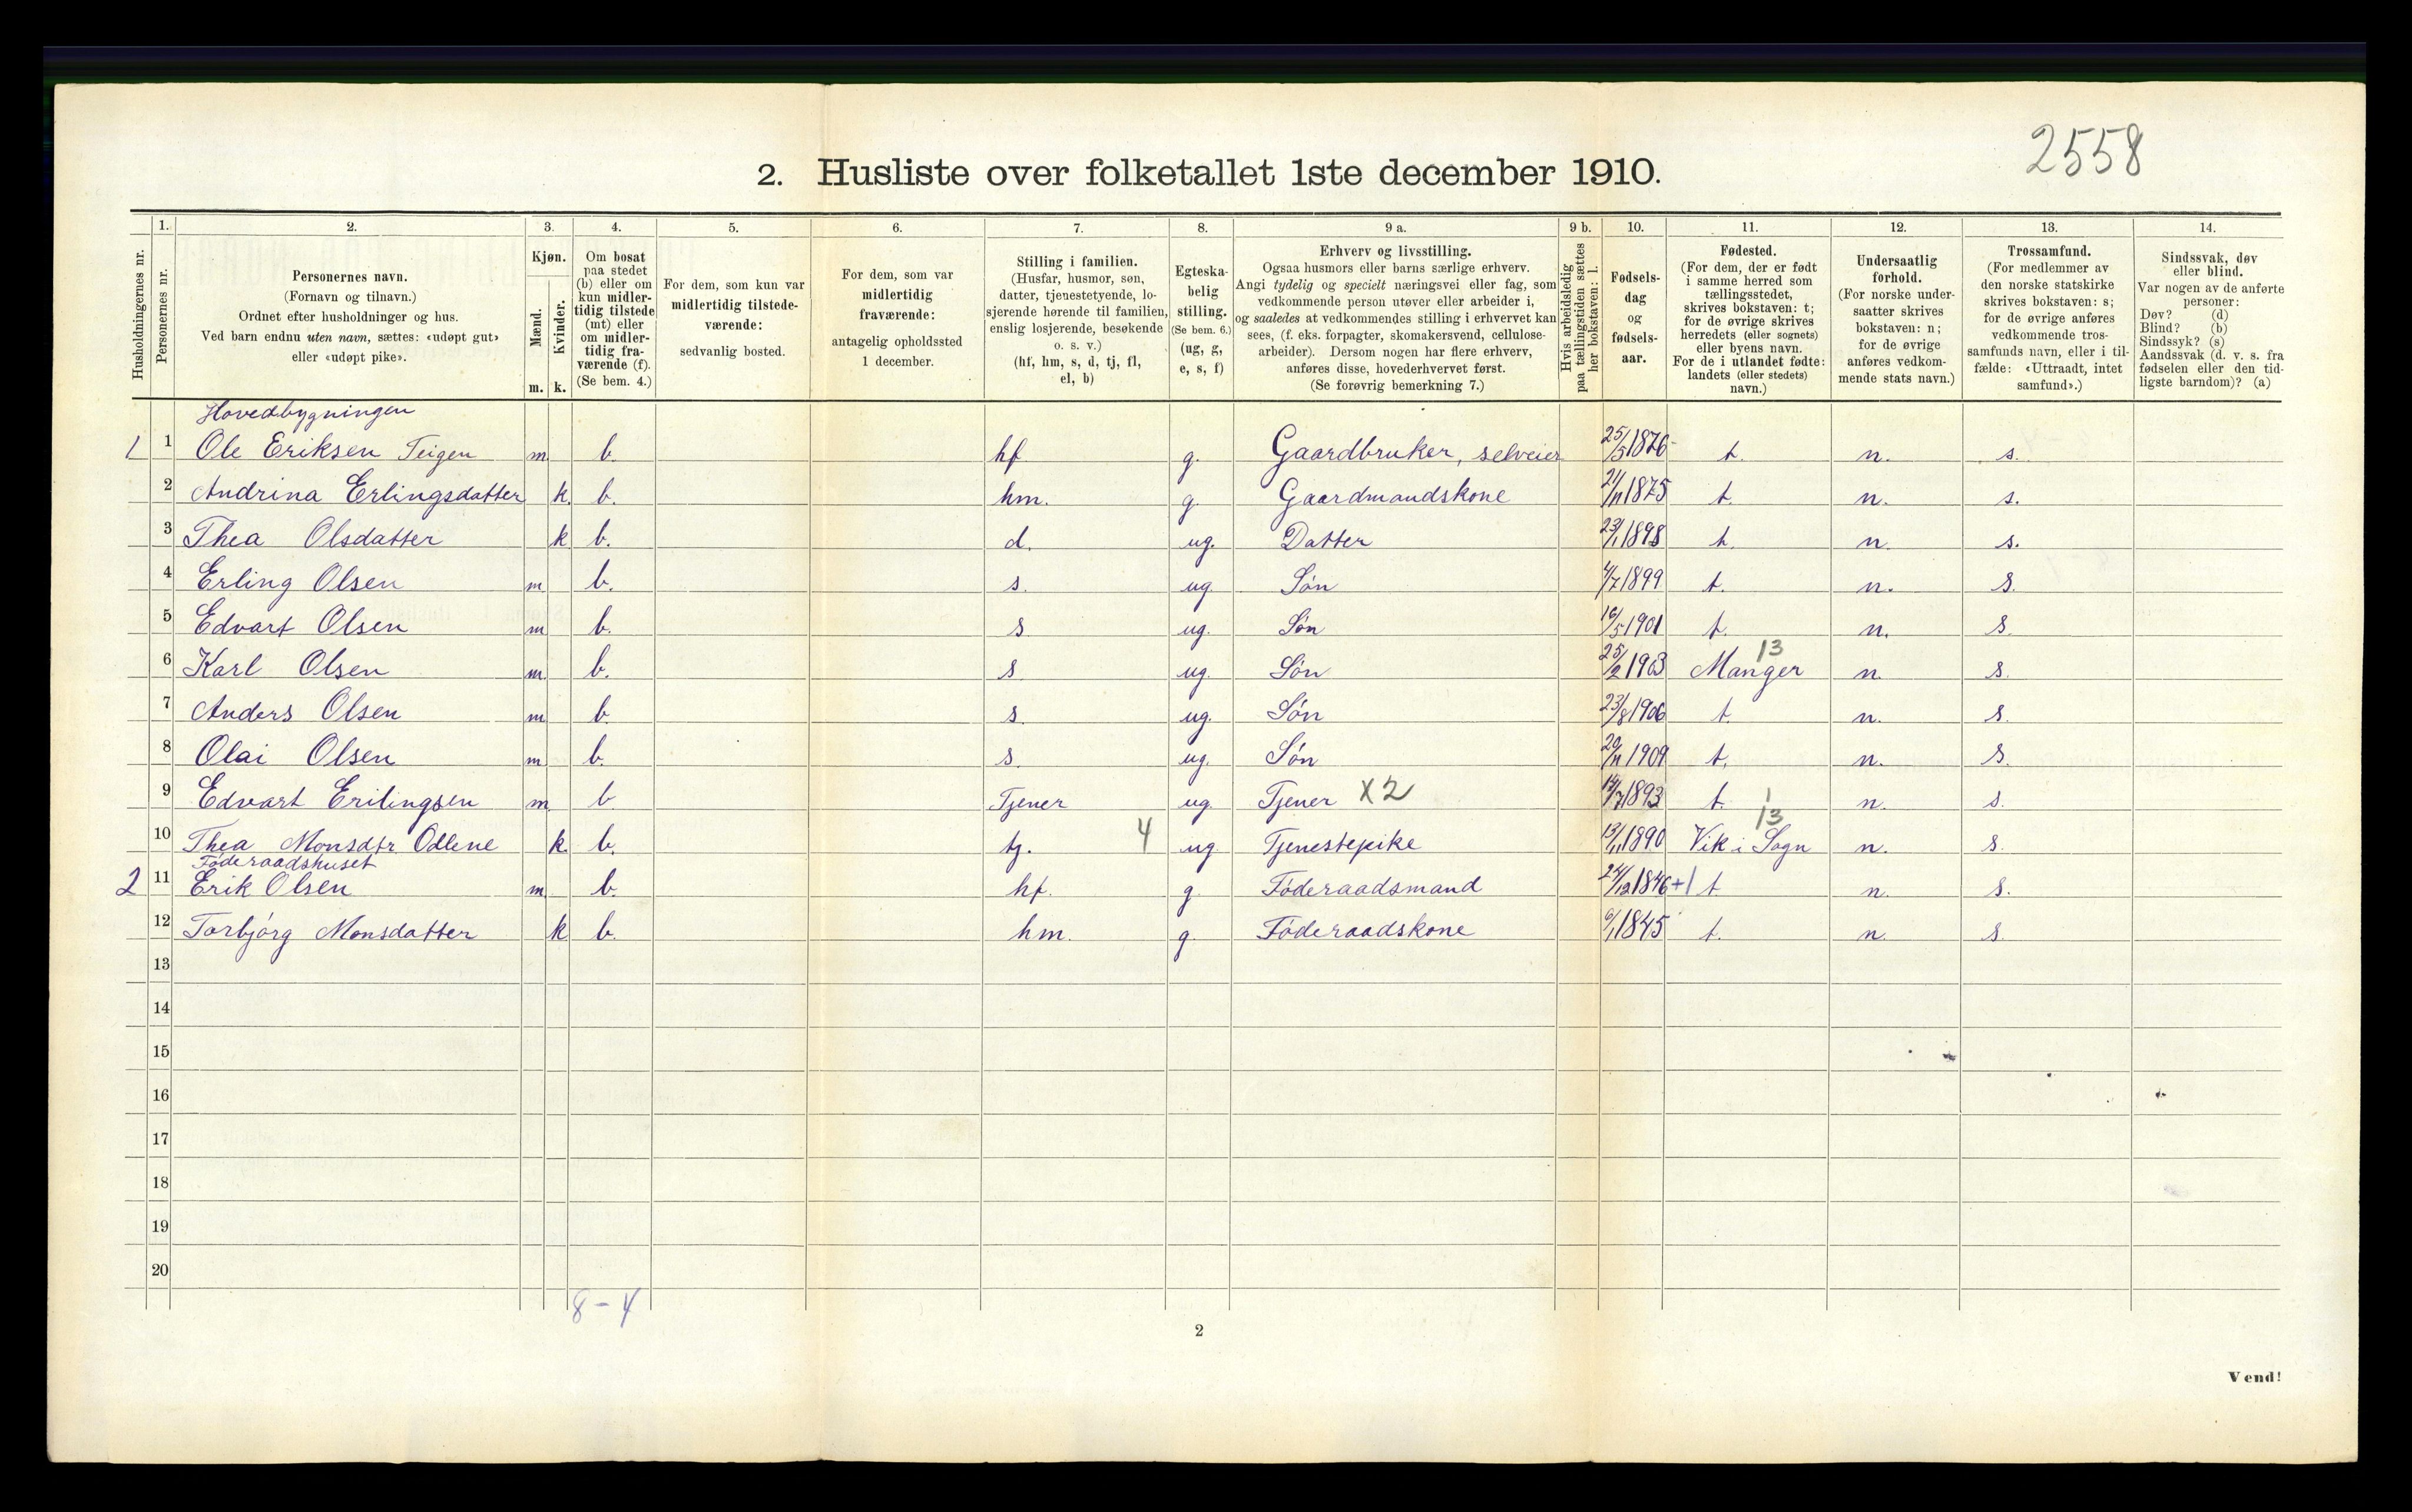 2558
2. Husliste over folketallet 1ste december 1910.
Husholdningernes nr.
1.
Personernes nr.
2.
Personernes navn.
(Fornavn og tilnavn.)
Ordnet efter husholdninger og hus.
Ved barn endnu uten navn, sættes: «udøpt gut»
eller «udøpt pike».
3.
Kjøn.
Mænd.
Kvinder.
m. k.
4.
Om bosat
paa stedet
(b) eller om
kun midler-
tidig tilstede
(mt) eller
om midler-
tidig fra-
værende (f).
(Se bem. 4.)
5.
For dem, som kun var
midlertidig tilstede-
værende:
sedvanlig bosted.
6.
For dem, som var
midlertidig
fraværende:
antagelig opholdssted
1 december.
7.
Stilling i familien.
(Husfar, husmor, søn,
datter, tjenestetyende, lo-
sjerende hørende til familien,
enslig losjerende, besøkende
o. s. v.)
(hf, hm, s, d, tj, fl,
el, b)
8.
Egteska-
belig
stilling.
(Se bem. 6.)
(ug, g,
e, s, f)
9 a.
Erhverv og livsstilling.
Ogsaa husmors eller barns særlige erhverv.
Angi tydelig og specielt næringsvei eller fag, som
vedkommende person utøver eller arbeider i,
og saaledes at vedkommendes stilling i erhvervet kan
sees, (f. eks. forpagter, skomakersvend, cellulose-
arbeider). Dersom nogen har flere erhverv,
anføres disse, hovederhvervet først.
(Se forøvrig bemerkning 7.)
9 b.
Hvis arbeidsledig
paa tællingstiden sættes
her bokstaven: l.
10.
Fødsels-
dag
og
fødsels-
aar.
11.
Fødested.
(For dem, der er født
i samme herred som
tællingsstedet,
skrives bokstaven: t;
for de øvrige skrives
herredets (eller sognets)
eller byens navn.
For de i utlandet fødte:
landets (eller stedets)
navn.)
12.
Undersaatlig
forhold.
(For norske under-
saatter skrives
bokstaven: n;
for de øvrige
anføres vedkom-
mende stats navn.)
13.
Trossamfund.
(For medlemmer av
den norske statskirke
skrives bokstaven: s;
for de øvrige anføres
vedkommende tros-
samfunds navn, eller i til-
fælde: «Uttraadt, intet
samfund».)
14.
Sindssvak, døv
eller blind.
Var nogen av de anførte
personer:
Døv? (d)
Blind? (b)
Sindssyk? (s)
Aandssvak (d. v. s. fra
fødselen eller den tid-
ligste barndom)? (a)
Hovedbygningen
1 1 Ole Eriksen Teigen m b. hf g. Gaardbruker, selveier 25/5 1876 t. n. s.
2 Andrina Erlingsdatter k. b. hm. g. Gaardmandskone 24/11 1875 t. n. s.
3 Thea Olsdatter k b. d. ug. Datter 23/1 1898 t. n. s.
4 Erling Olsen m b. s. ug. Søn 4/7 1899 t. n. s.
5 Edvart Olsen m b. s ug. Søn 16/5 1901 t. n. s.
13
6 Karl Olsen m b. s ug. Søn 25/2 1903 Manger n. s.
7 Anders Olsen m b. s. ug. Søn 23/8 1906 t. n. s.
8 Olai Olsen m b. s. ug. Søn 20/11 1909 t. n. s.
9 Edvart Erilingsen m b Tjener ug. Tjener X2 1893 t. n. s.
13
10 Thea Monsdtr Odlene k b. tj. 4 ug. Tjenestepike 13/1 1890 Vik i Sogn n. s.
Føderaadshuset
2 11 Erik Olsen m b. hf. g. Føderaadsmand 24/12 1846 +1 t n. s.
12 Torbjørg Monsdatter k b. hm. g. Føderaadskone 6/1 1845 t. n. s.
13
14
15
16
17
18
19
20
8-4
2
Vend!